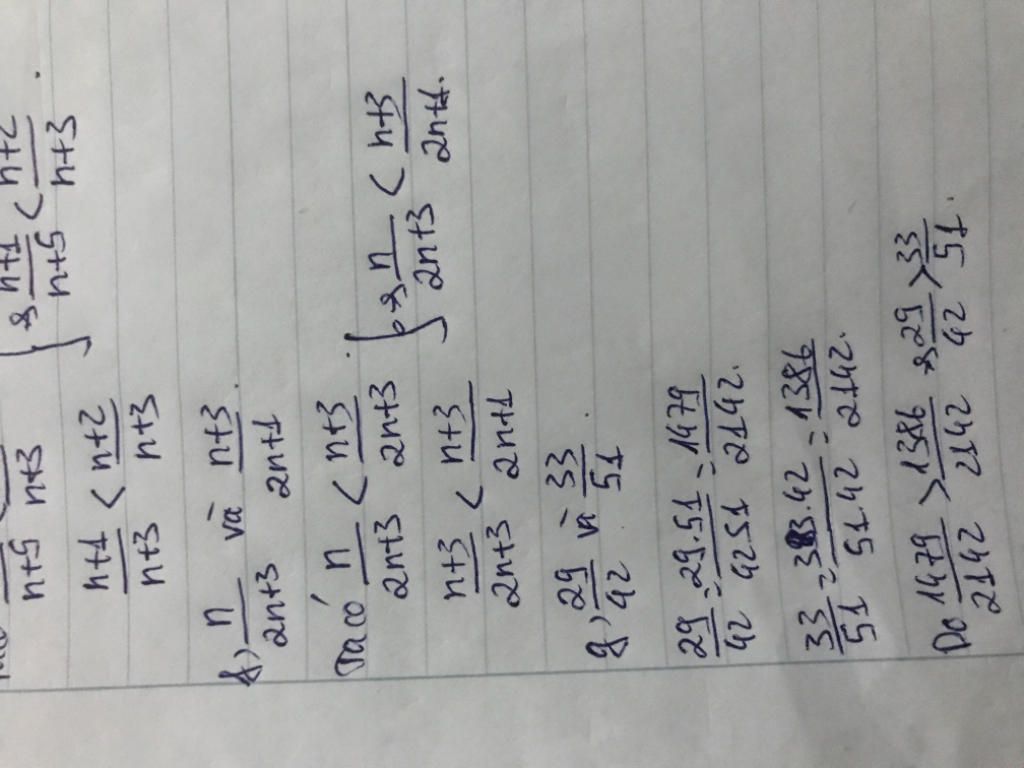 n+5 n+3 } => n+1/n+5 < n+2/n+3 .
n+1/n+3 < n+2/n+3
f, n/2n+3 và n+3/2n+1 .
Ta có n/2n+3 < n+3/2n+3 . } => n/2n+3 < n+3/2n+1 .
n+3/2n+3 < n+3/2n+1
g, 29/42 và 33/51 .
29/42 = 29.51/4251 = 1479/2142 .
33/51 = 33.42/51.42 = 1386/2142 .
Do 1479/2142 > 1386/2142 => 29/42 > 33/51 .